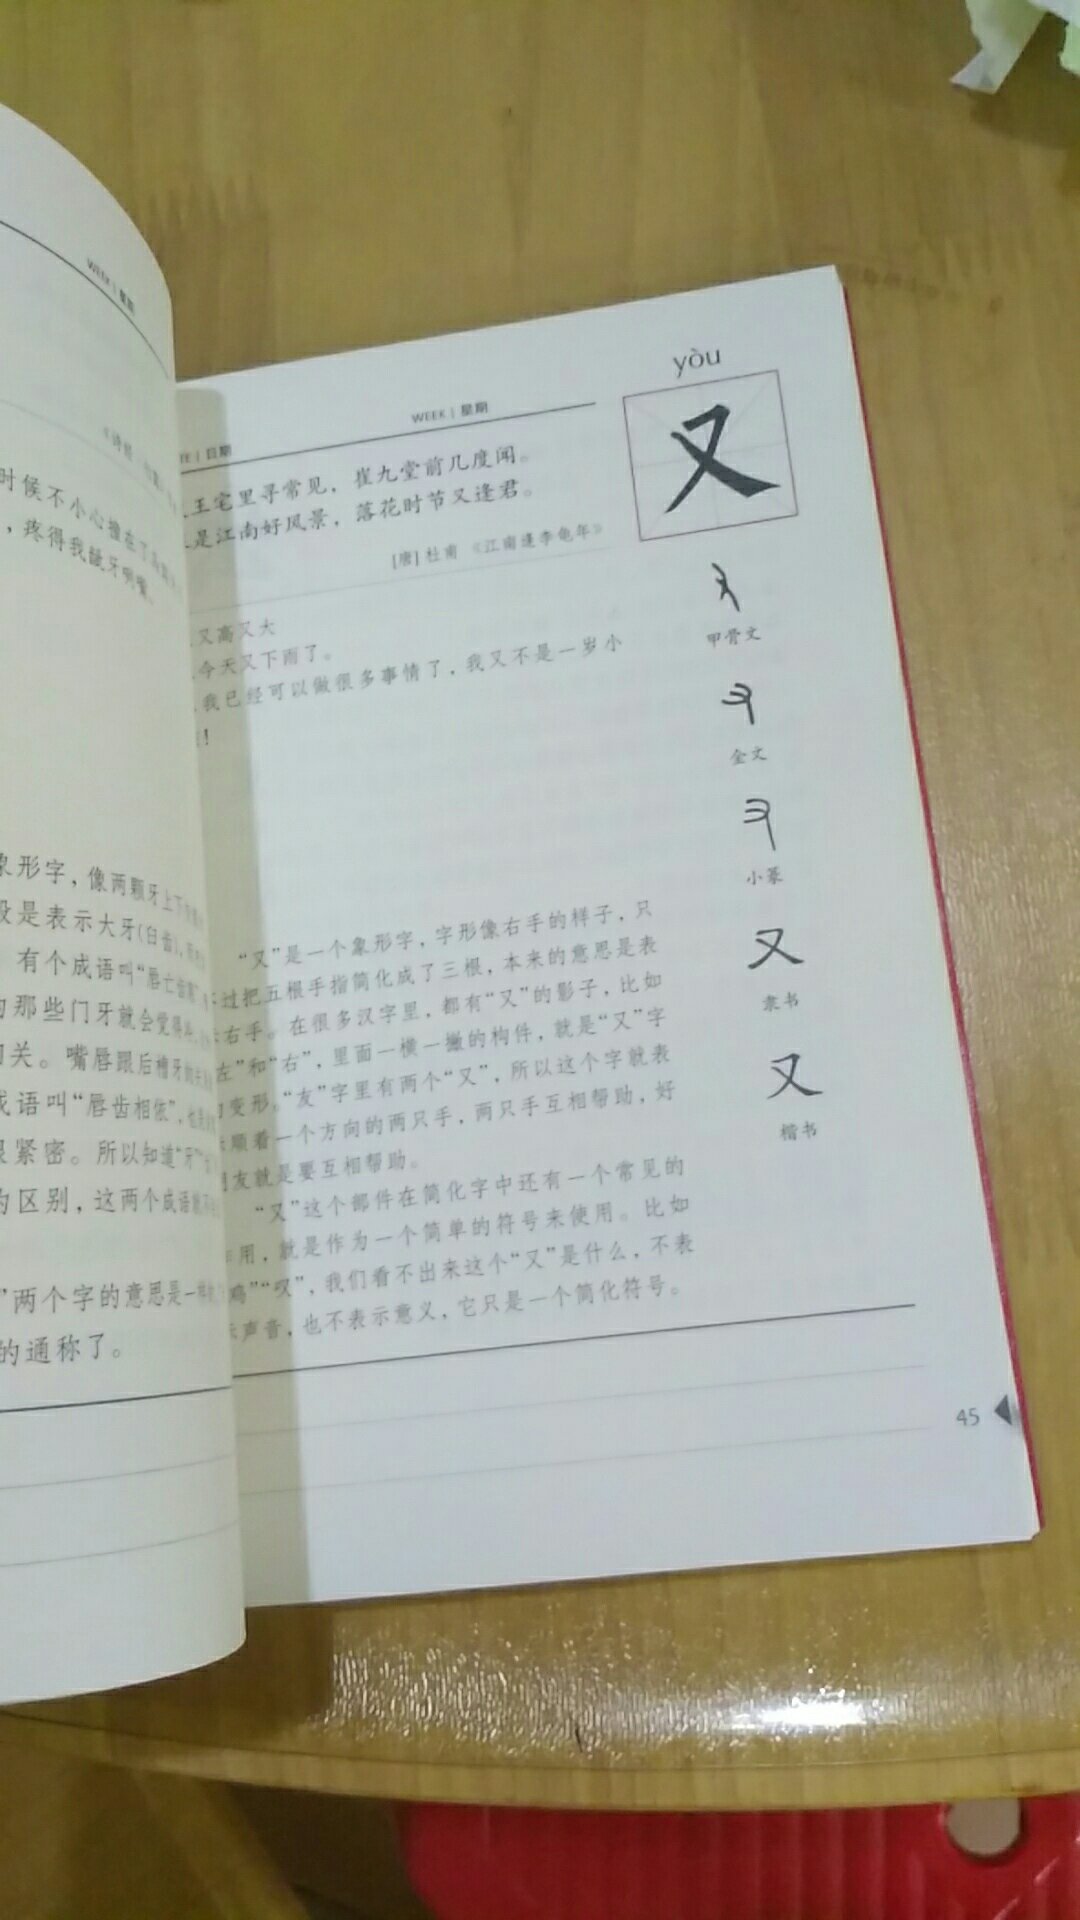 WEEK | 星期
时候不小心撞在了
，疼得我龇牙咧嘴。
象形字，像两颗牙上下
般是表示大牙(臼齿)，
有个成语叫“唇亡齿寒”
的那些门牙就会觉得
相关。嘴唇跟后槽牙
成语叫“唇齿相依”，也
很紧密。所以知道“牙”
的区别，这两个成语就不
”两个字的意思是一样
的通称了。
| 日期
WEEK | 星期
yòu
又
王宅里寻常见，崔九堂前几度闻。
是江南好风景，落花时节又逢君。
[唐] 杜甫 《江南逢李龟年》
又高又大
今天又下雨了。
我已经可以做很多事情了，我又不是一岁小
！
甲骨文
金文
小篆
又
隶书
又
楷书
“又”是一个象形字，字形像右手的样子，只
过把五根手指简化成了三根，本来的意思是表
右手。在很多汉字里，都有“又”的影子，比如
左”和“右”，里面一横一撇的构件，就是“又”字
变形。“友”字里有两个“又”，所以这个字就表
顺着一个方向的两只手，两只手互相帮助，好
朋友就是要互相帮助。
“又”这个部件在简化字中还有一个常见的
作用，就是作为一个简单的符号来使用。比如
鸡”“叹”，我们看不出来这个“又”是什么，不表
示声音，也不表示意义，它只是一个简化符号。
45